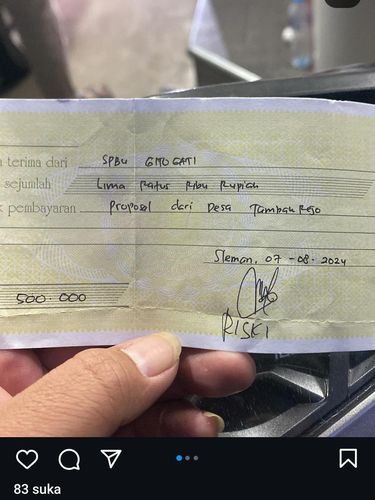 terima dari SPBU GITO GATI
sejumlah Lima Ratus Ribu Rupiah
pembayaran Proposal dari Desa Tambak Rejo
Sleman, 07 - 08 - 2024
500.000
RISKI
83 suka